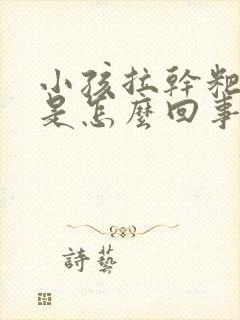 小孩拉幹粑
是怎麼回事
詩藝